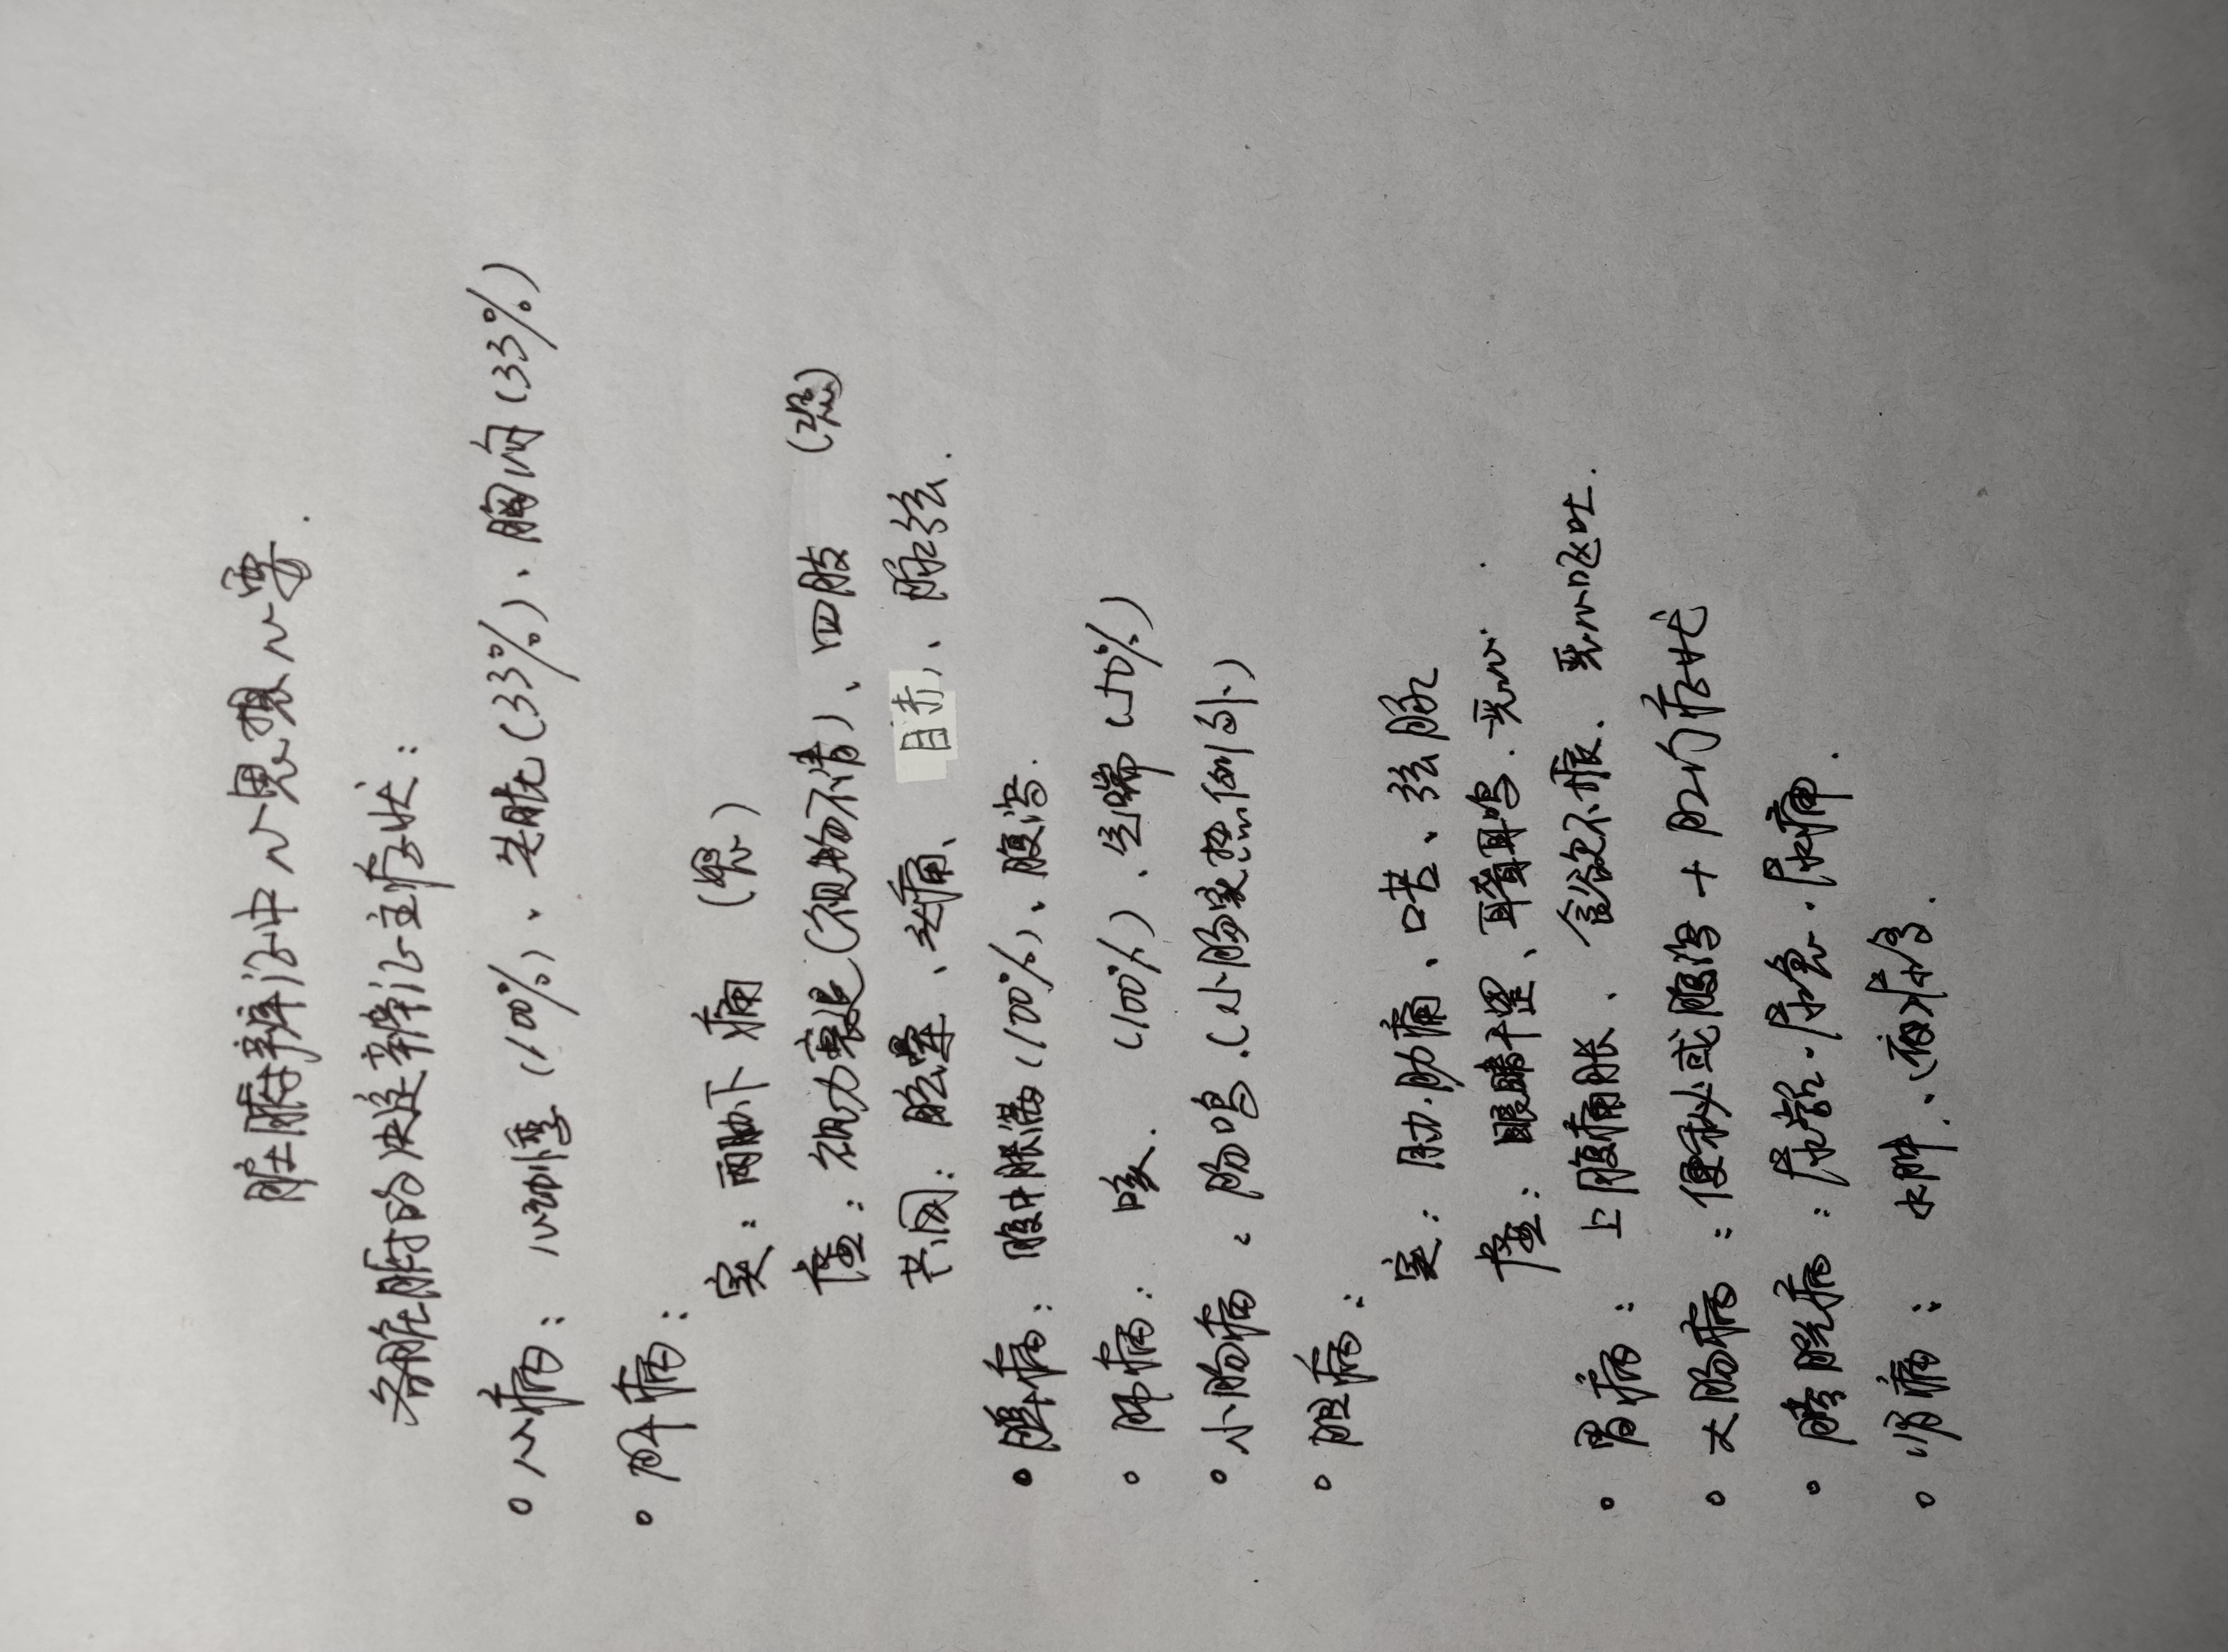 脏腑辨证中心思想心要.
各脏腑的决定辨证主症状:
心病: 心动悸 (100%)、失眠 (33%)、胸闷 (33%)
肝病:
实: 两胁下痛
虚: 视力衰退 (视物不清)、四肢
共同: 眩晕、头痛、目赤、脉弦.
脾病: 腹中胀满 (100%)、腹泻.
肺病: 咳. (100%)、气喘 (50%)
小肠病: 肠鸣. (小肠实热例外)
胆病:
实: 肋痛、口苦、弦脉
虚: 眼睛干涩、耳聋耳鸣. 恶心.
胃病: 上腹痛胀、食欲不振、恶心呕吐.
大肠病: 便秘或腹泻 + 内症状
膀胱病: 尿频. 尿急. 尿痛.
肾病: 水肿. 夜尿多.